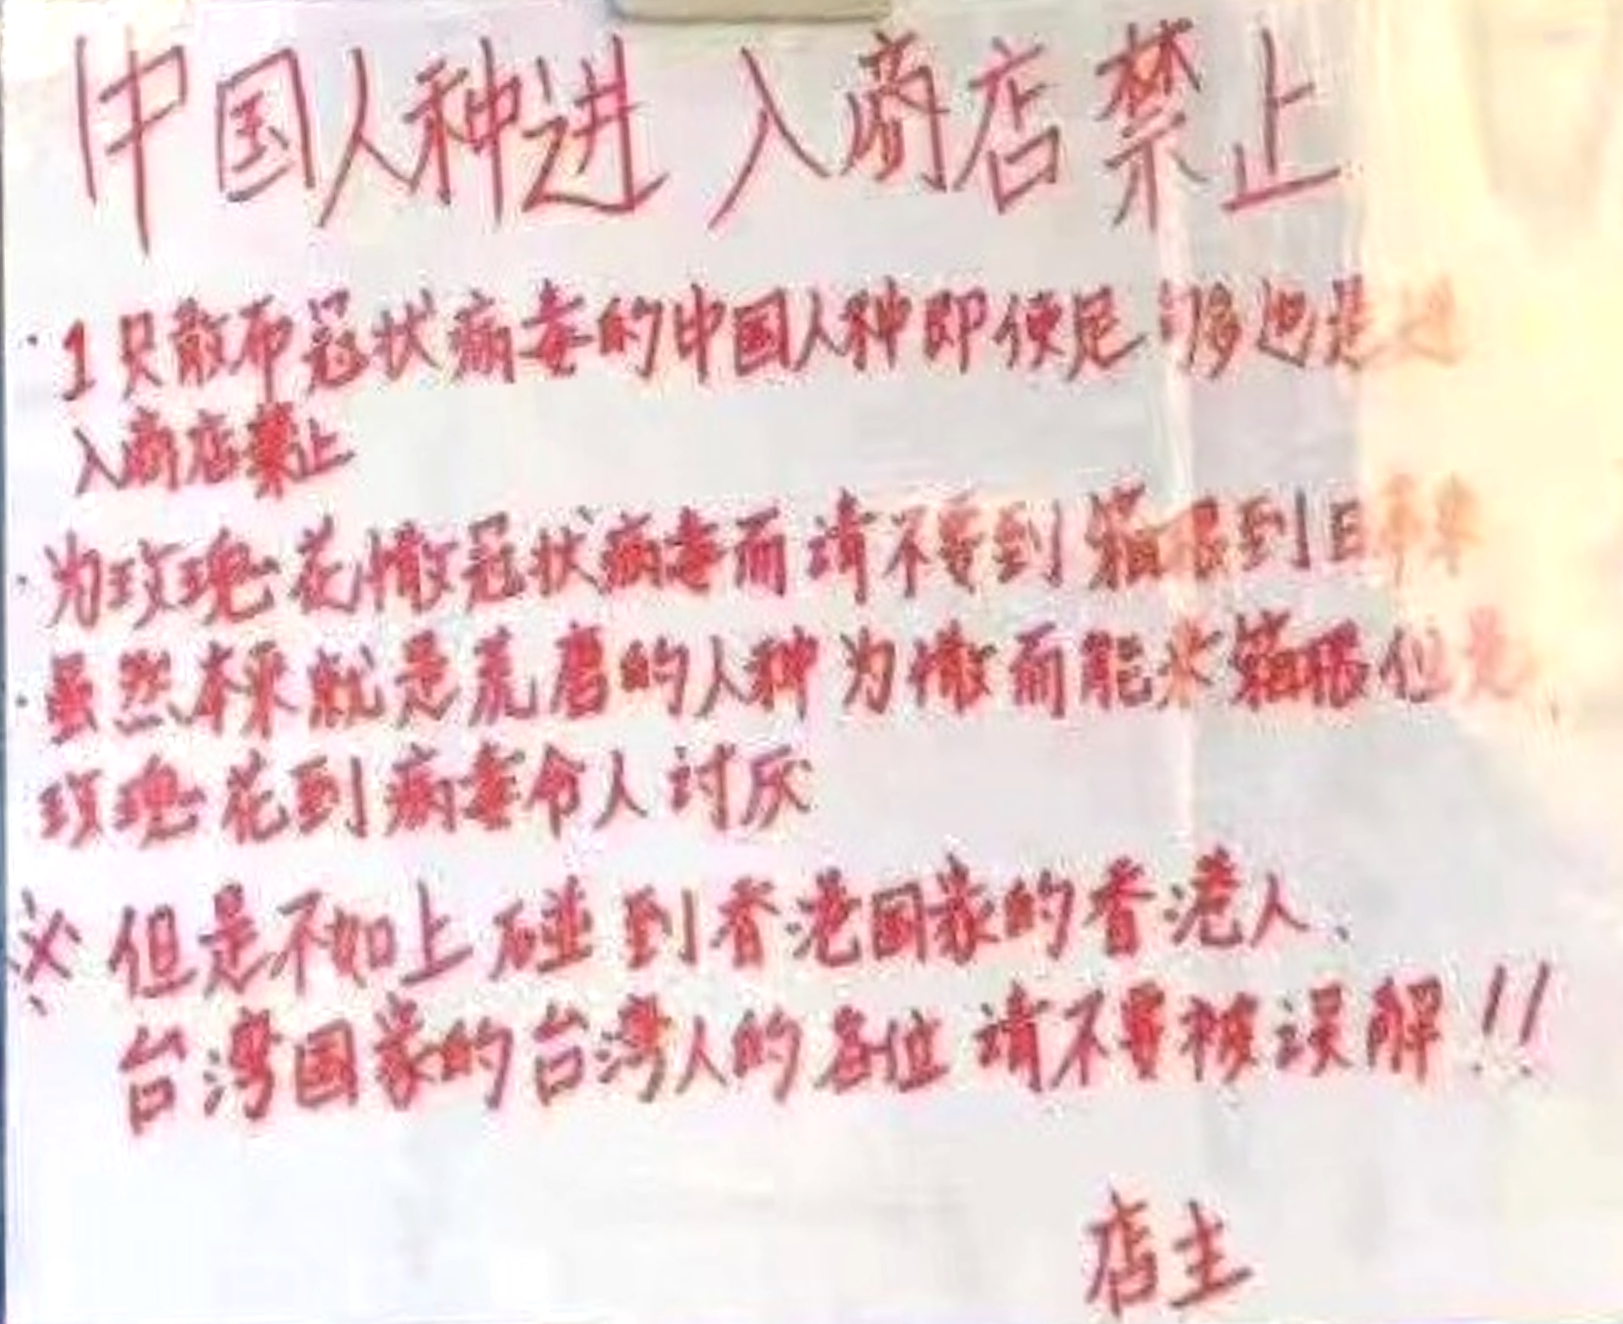 中国人种进入商店禁止
·1只散布冠状病毒的中国人种即便是 够也是进
入商店禁止
·为玫瑰花撒冠状病毒而请不要到箱根到日本来
·虽然本来就是荒唐的人种为撒而能来箱根但是
玫瑰花到病毒令人讨厌
※但是不如上碰到香港国家的香港人、
台湾国家的台湾人的各位请不要被误解!!
店主